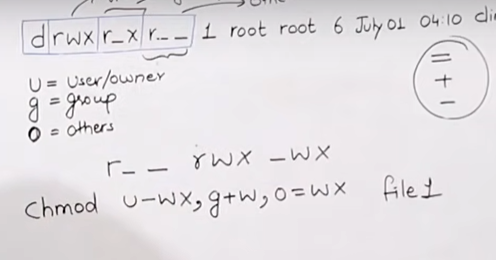 drwxr_xr__ 1 root root 6 July 01 04:10
U = User/owner
g = group
O = others
=
+
-
r__ rwx -wx
Chmod u-wx, g+w, o=wx file1